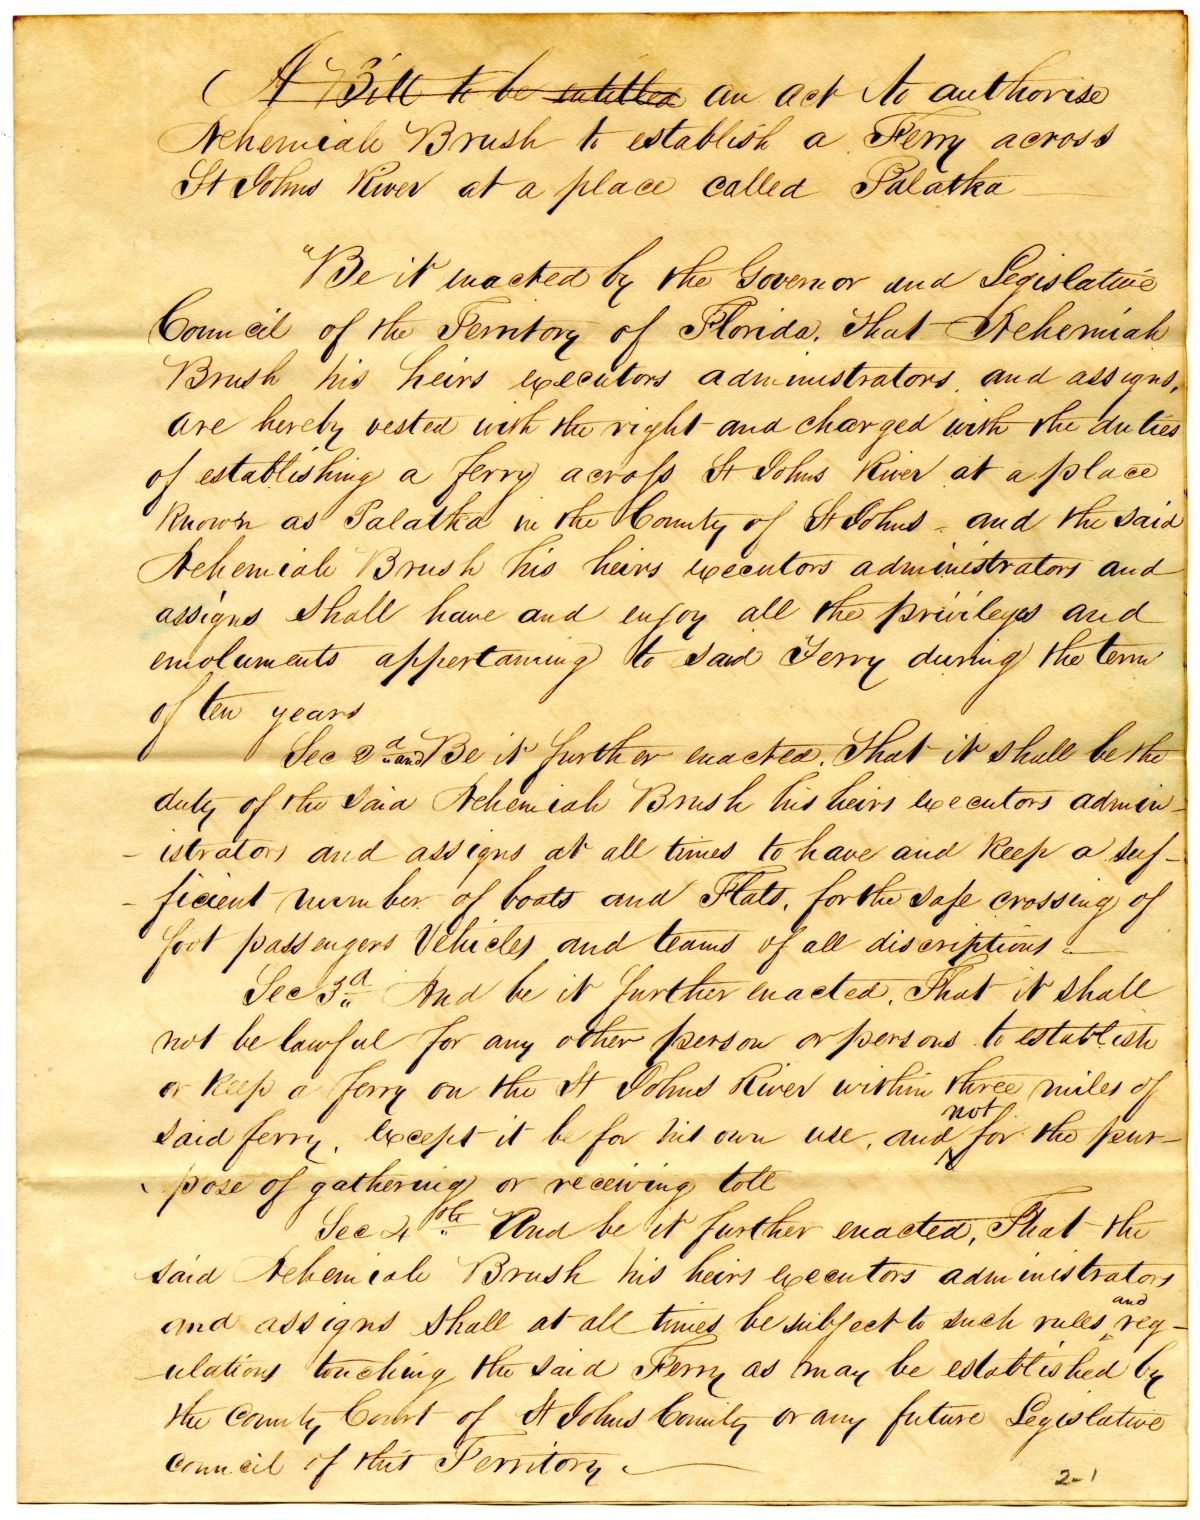 ( A Bill to be entitled an act to authorise
Nehemiah Brush to establish a Ferry across
St Johns River at a place called Palatka
"Be it enacted by the Governor and Legislative
Council of the Territory of Florida. That Nehemiah
Brush his heirs executors administrators and assigns,
are hereby vested with the right and charged with the duties
of establishing a ferry across St Johns River at a place
known as Palatka in the County of St Johns - and the said
Nehemiah Brush his heirs executors administrators and
assigns shall have and enjoy all the privileges and
emoluments appertaining to said Ferry during the term
of ten years
Sec 2d and Be it further enacted. That it shall be the
duty of the said Nehemiah Brush his heirs executors admin-
-istrators and assigns at all times to have and keep a suf-
-ficient number of boats and Flats, for the safe crossing of
foot passengers Vehicles and teams of all discriptions -
Sec 3d And be it further enacted. That it shall
not be lawful for any other person or persons to establish
or keep a ferry on the St Johns River within three miles of
said ferry. except it be for his own use, and not for the pur-
pose of gathering or receiving toll
Sec 4th And be it further enacted, That the
said Nehemiah Brush his heirs executors administrators
and assigns shall at all times be subject to such rules and reg-
-ulations touching the said Ferry as may be established by
the County Court of St Johns County or any future Legislative
council of this Territory. -
2-1